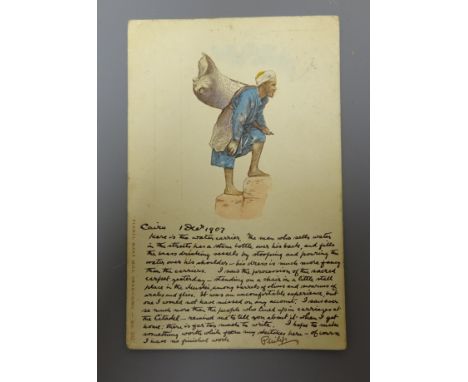 Cairo 1 Decr 1907
Here is the water carrier. The man who sells water
in the streets has a stone bottle over his back, and fills
the brass drinking vessels by stooping and pouring the
water over his shoulder - his dress is much more funny
than the carriers. I saw the procession of the sacred
carpet yesterday - standing on a chair in a little stall
place in the Muski among barrels of olives and swarms of
arabs and flies. It was an uncomfortable experience, but
one I would not have missed on any account. I saw ever
so much more than the people who lined up in carriages at
the Citadel - remind me to tell you about it when I get
home, there is far too much to write. I hope to make
something worth while from my sketches here - of course
I have no finished work
Philip